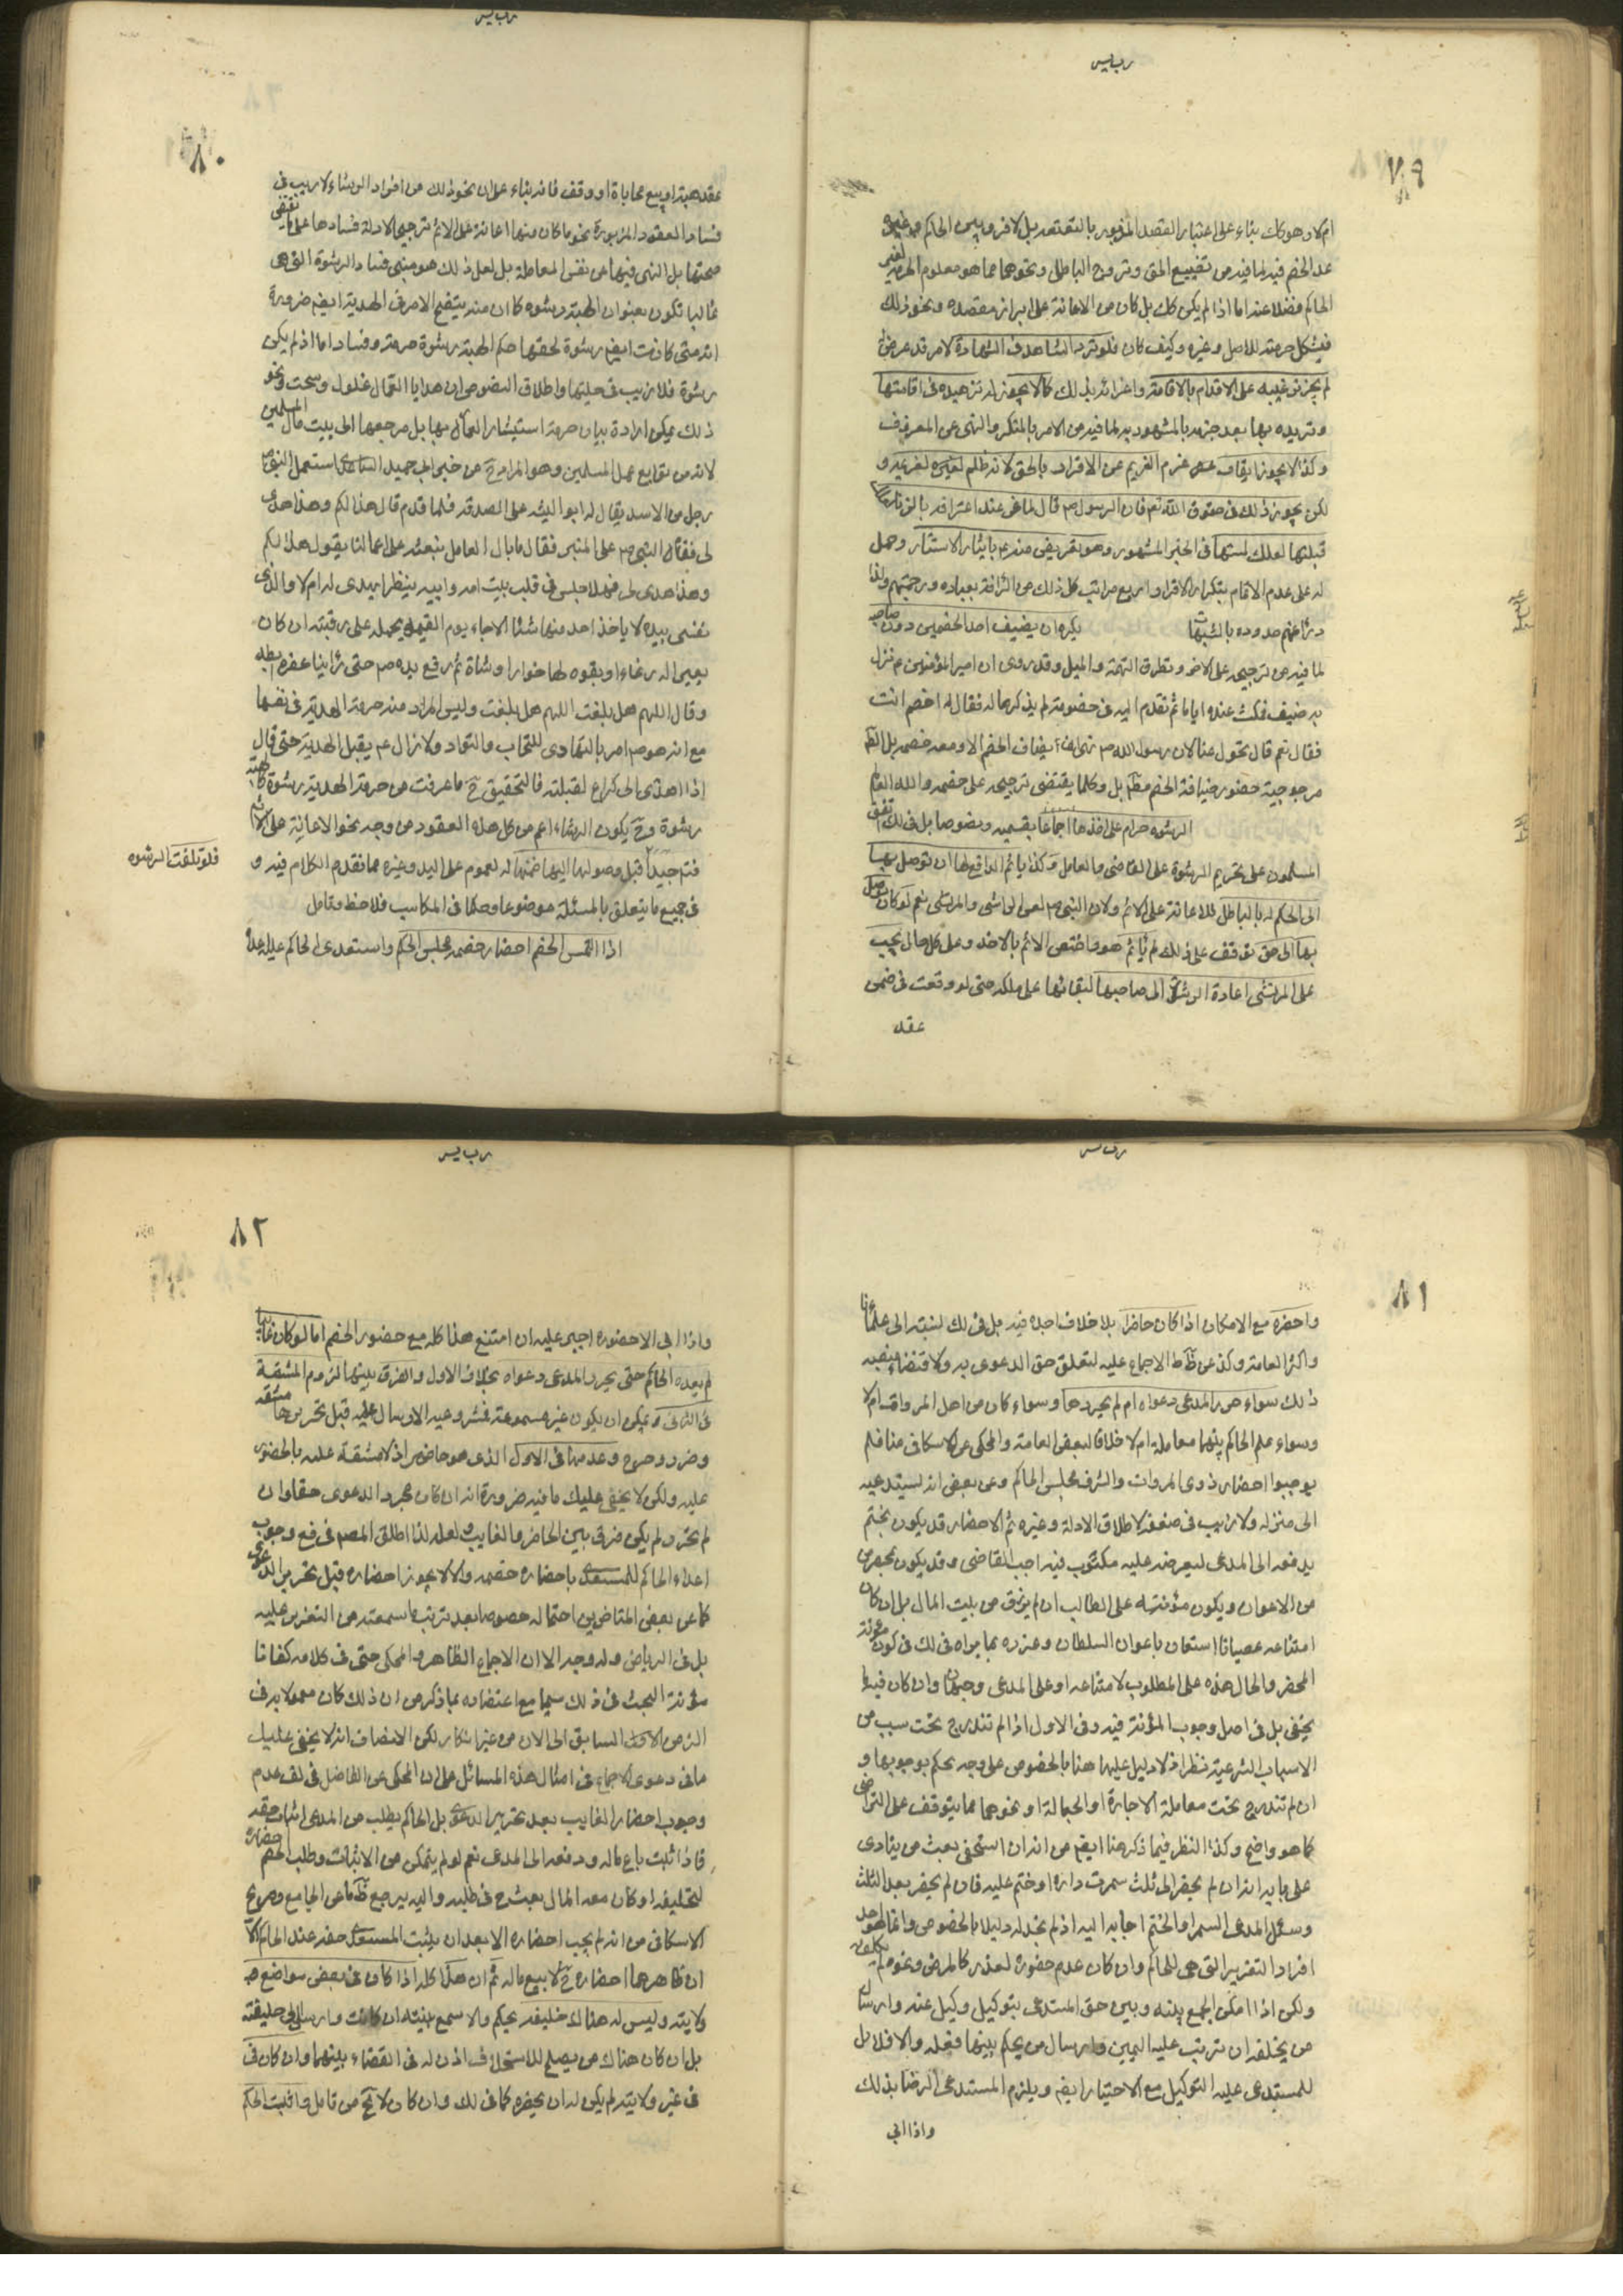 ربايس
٧٩
ام لا وهو كك بناء على اعتبار القصد المزبور بالتعتعة بل لا فرق بين الحاكم وغيره
عد الخصم فيه لما فيه من تضييع الحق وترويج الباطل ونحوهما مما هو معلوم الحرمة لغير
الحاكم فضلا عنه اما اذا لم يكن كك بل كان من الاعانة على ابراز مقصده ونحو ذلك
فيشكل حرمته للاصل وغيره وكيف كان فلو تردد الشاهد في الشهادة لامر قد عرض
لم يجز ترغيبه على الاقدام بالاقامة واغرائه بذلك كما لا يجوز له تزهيده في اقامتها
وترديده بها بعد جزمه بالمشهود به لما فيه من الامر بالمنكر والنهى عن المعروف
وكذا لا يجوز ايقاف عزم الغريم عن الاقرار بالحق لانه ظلم لغريمه و
لكن يجوز ذلك في حقوق الله تعم فان الرسول ص قال لماعز عند اعترافه بالزنا
قبلتها لعلك لمستها في الخبر المشهور وهو تعريض منه ع بايثار الاستتار وحمل
له على عدم الاتمام بتكرار الاقرار اربع مراتب كل ذلك من الرأفة بعباده ورحمتهم ولذا
درأ عنهم حدوده بالشبهات يكره ان يضيف احد الخصمين دون صاحبه
لما فيه من ترجيحه على الاخر وتطرق التهمة والميل وقد روى ان امير المؤمنين ع نزل
به ضيف فمكث عنده اياما ثم تقدم اليه في خصومة لم يذكرها له فقال له اخصم انت
فقال نعم قال تحول عنا لان رسول الله ص نهى ان يضاف الخصم الا ومعه خصمه بل الظ
مرجوحية حضور ضيافة الخصم مط بل وكلما يقتضى ترجيحه على خصمه والله العالم
الرشوه حرام على اخذها اجماعا بقسميه ونصوصا بل في لك اتفق
المسلمون على تحريم الرشوة على القاضى والعامل وكذا ياثم الدافع لها ان توصل بها
الى الحكم له بالباطل للاعانة على الاثم ولان النبى ص لعن الراشى والمرتشى نعم لو كان توصل
بها الى حق توقف على ذلك لم ياثم هو واختص الاثم بالاخذ وعلى كل حال يجب
على المرتشى اعادة الرشوة الى صاحبها لبقائها على ملكه حتى لو وقعت في ضمن
عقد
ربايس
٨٠
عقد هبة او بيع محاباة او وقف فانه بناء على ان نحو ذلك من افراد الرشاء لا ريب في
فساد العقود المزبورة نحو ما كان منها اعانة على الاثم ترجيحا لادلة فسادها على ما يقتضى
صحتها بل النهى فيها عن نفس المعاملة بل لعل ذلك هو مبنى فساد الرشوة التى هى
غالبا تكون بعنوان الهبة رشوه كان منه يتضح الامر في الهدية ايضم ضرورة
انه متى كانت ايضم رشوة لحقها حكم الهبة رشوة حرمة وفسادا اما اذ لم يكن
رشوة فلا ريب في حليتها واطلاق النصوص ان هدايا العمال غلول وسحت ونحو
ذلك يمكن ارادة بيان حرمة استيثار العمال بها بل مرجعها الى بيت مال المسلمين
لانه من توابع عمل المسلمين وهو المراد ح من خبر ابى حميد الساعدى استعمل النبى ص
رجل من الاسد يقال له ابو اللبثه على الصدقة فلما قدم قال هذا لكم وهذا اهدى
لى فقال النبى ص على المنبر فقال ما بال العامل نبعثه على اعمالنا يقول هذا لكم
وهذا اهدى لى فهلا جلس في قلب بيت امه وابيه ينظر ايهدى له ام لا والذى
نفسى بيده لا ياخذ احد منها شئا الا جاء يوم القيمة يحمله على رقبته ان كان
بعير اله رغاء او بقره لها خوارا وشاة ثم رفع يده ص حتى رأينا عفرة ابطه
وقال اللهم هل بلغت اللهم هل بلغت وليس المراد منه حرمة الهدية في نفسها
مع انه هو ص امر بالتهادى للتحاب والتواد ولا زال ع يقبل الهدية حتى قال
اذا اهدى الى كراع لقبلته فالتحقيق ح ما عرفت من حرمة الهدية رشوة كالهبة
رشوة وح يكون الرشاء اعم من كل هذه العقود من وجه نحو الاعانة على الاثم
فتم جيدا قبل وصولها اليها ضمنها له لعموم على اليد وغيره مما تقدم الكلام فيه و
في جميع ما يتعلق بالمسئلة موضوعا وحكما في المكاسب فلاحظ وتامل
اذا التمس الخصم احضار خصمه مجلس الحكم واستعدى الحاكم عليه اعداه
فلو تلفت الرشوه
ربايس
٨١
واحضره مع الامكان اذا كان حاضرا بلا خلاف اجده فيه بل في لك نسبته الى علمائنا
واكثر العامة وكذ عن ظ ط الاجماع عليه لتعلق حق الدعوى به ولاقتضاء منصبه
ذلك سواء حرر المدعى دعواه ام لم يحررها وسواء كان من اهل المروات ام لا
وسواء علم الحاكم بينهما معاملة ام لا خلافا لبعض العامة والمحكى عن الاسكافى منا فلم
يوجبوا احضار ذوى المروات والشرف مجلس الحاكم وعن بعض انه يستدعيه
الى منزله ولا ريب في ضعفه لاطلاق الادلة وغيره ثم الاحضار قد يكون بختم
يدفعه الى المدعى ليعرضه عليه مكتوب فيه اجب القاضى وقد يكون بمحضر من
من الاعوان ويكون مؤنته على الطالب ان لم يرزق من بيت المال بل ان كان
امتناعه عصيانا استعان باعوان السلطان وعزره بما يراه في لك في كون مؤنة
المحضر والحال هذه على المطلوب لامتناعه او على المدعى وجهان وان كان فيه ما
يخفى بل في اصل وجوب المؤنة فيه وفى الاول اذا لم تندرج تحت سبب من
الاسباب الشرعية نظر اذ لا دليل عليها هنا بالخصوص على وجه يحكم بوجوبها و
ان لم تندرج تحت معاملة الاجارة او الجعالة او نحوهما مما يتوقف على التراضى
كما هو واضح وكذا النظر فيما ذكر هنا ايضم من انه ان استخفى بعث من ينادى
على بابه انه ان لم يحضر الى ثلث سمرت داره او ختم عليه فان لم يحضر بعد الثلث
وسئل المدعى السمر او الختم اجابه اليه اذ لم نجد له دليلا بالخصوص وانما هو احد
افراد التعزير التى هى للحاكم وان كان عدم حضوره لعذر كالمرض ونحوه لم يكلفه
ولكن اذا امكن الجمع بينه وبين حق المستدعى بتوكيل وكيل عنه وارسال
من يحلفه ان ترتب عليه اليمين وارسال من يحكم بينهما فعله والا فلا بل
للمستدعى عليه التوكيل مع الاختيار ايضم ويلزم المستدعى الرضا بذلك
واذا ابى
ربايس
٨٢
واذا ابى الا حضوره اجبر عليه ان امتنع هذا كله مع حضور الخصم اما لو كان غائبا
لم يعده الحاكم حتى يحرر المدعى دعواه بخلاف الاول والفرق بينهما لزوم المشقة
في الثانى ويمكن ان يكون غير مسموعة فشروعية الارسال عليه قبل تحريرها مشقه
وضرر وحرج وعدمها في الاول الذى هو حاضر اذ لا مشقة عليه بالحضور
عليه ولكن لا يخفى عليك ما فيه ضرورة انه ان كان مجرد الدعوى حقا وان
لم تحرر لم يكن فرق بين الحاضر والغايب ولعله لذا اطلق المصم في فع وجوب
اعداء الحاكم للمستعدى باحضاره خصمه والا لا يجوز احضاره قبل تحرير الدعوى
كما عن بعض المتاخرين احتماله خصوصا بعد ترتب ما سمعته من التعزير عليه
بل في الرياض وله وجه الا ان الاجماع الظاهر والمحكى حتى في كلامه كفانا
مؤنة البحث في ذلك سيما مع اعتضاده بما ذكر من ان ذلك كان معمولا به في
الزمن السابق الى الان من غير انكار لكن الانصاف انه لا يخفى عليك
ما في دعوى الاجماع في امثال هذه المسائل على ان المحكى عن الفاضل في لف عدم
وجوب احضار الغايب بعد تحرير الدعوى بل الحاكم يطلب من المدعى اثبات حقه
فاذا ثبت باع ماله ودفعه الى المدعى نعم لو لم يتمكن من الاثبات وطلب الخصم احضاره
لتحليفه او كان معه المال بعث ح في طلبه واليه يرجع ظ ما عن الجامع وصريح
الاسكافى من انه لم يجب احضاره الا بعد ان يثبت المستعدى حقه عند الحاكم الا
ان ظاهرهما احضاره ح لا بيع ماله ثم ان هذا كله اذا كان في بعض مواضع
ولايته وليس له هناك خليفه يحكم والا سمع بينته ان كانت وارسل الى خليفته
بل ان كان هناك من يصلح للاستخلاف اذن له في القضاء بينهما وان كان في
في غير ولايته لم يكن له ان يحضره كما في لك وان كان لا يخ من تامل واثبت الحكم